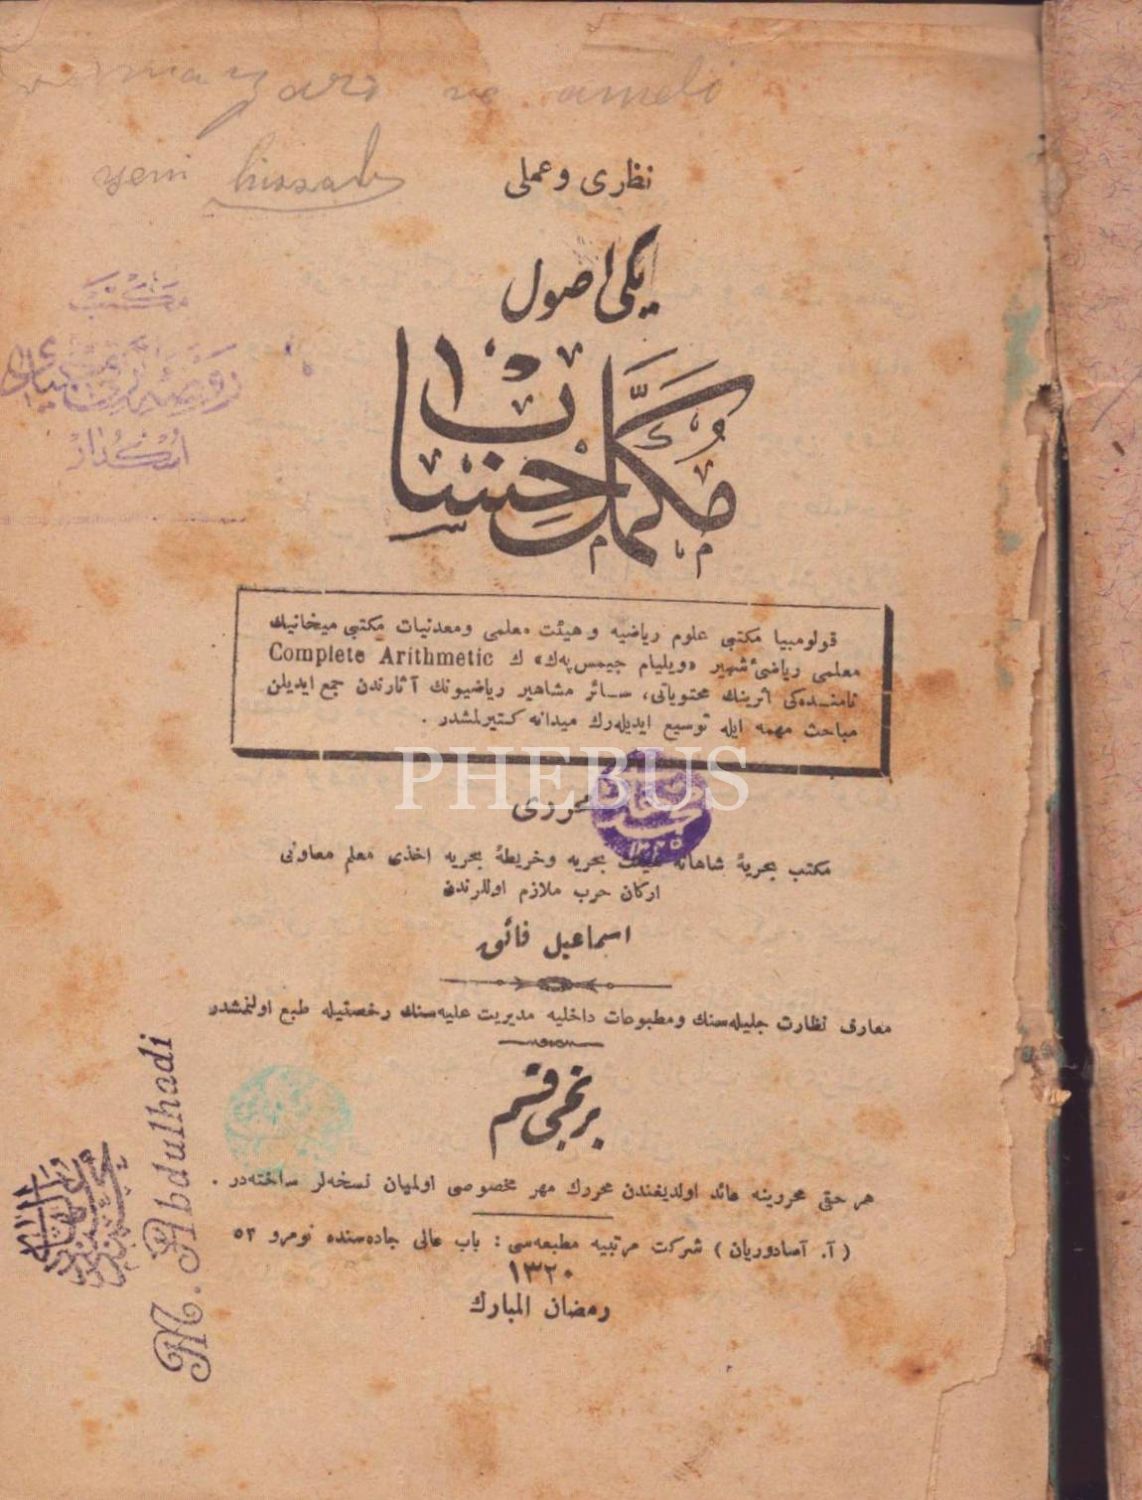 ve ameli
yeni hissab
نظری و عملی
یکی اصول
مكمل حساب
مكتب
اسكدار
قولومبیا مكتبی علوم ریاضیه و هیئت معلمی و معدنیات مكتبی میخانیك
معلمی ریاضیٔ شهیر «ویلیام جیمس پهك» ك Complete Arithmetic
نامنده‌كی اثرینك محتویاتی، سائر مشاهیر ریاضیونك آثارندن جمع ایدیلن
مباحث مهمه ایله توسیع ایدیله‌رك میدانه كتیرلمشدر .
PHEBUS
محرری
مكتب بحریهٔ شاهانه هیئت بحریه و خریطهٔ بحریه اخذی معلم معاونی
اركان حرب ملازم اوللرندن
اسماعیل فائق
معارف نظارت جلیله‌سنك و مطبوعات داخلیه مدیریت علیه‌سنك رخصتیله طبع اولنمشدر
برنجی قسم
هر حقی محررینه عائد اولدیغندن محررك مهر مخصوصی اولمیان نسخه‌لر ساخته‌در .
(آ. آصادوریان) شركت مرتبیه مطبعه‌سی : باب عالی جاده‌سنده نومرو ٥٢
١٣٢٠
رمضان المبارك
M. Abdulhadi